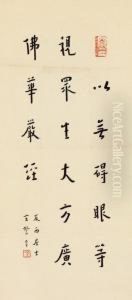 以無碍眼等
視眾生大方廣
佛華嚴經
居士